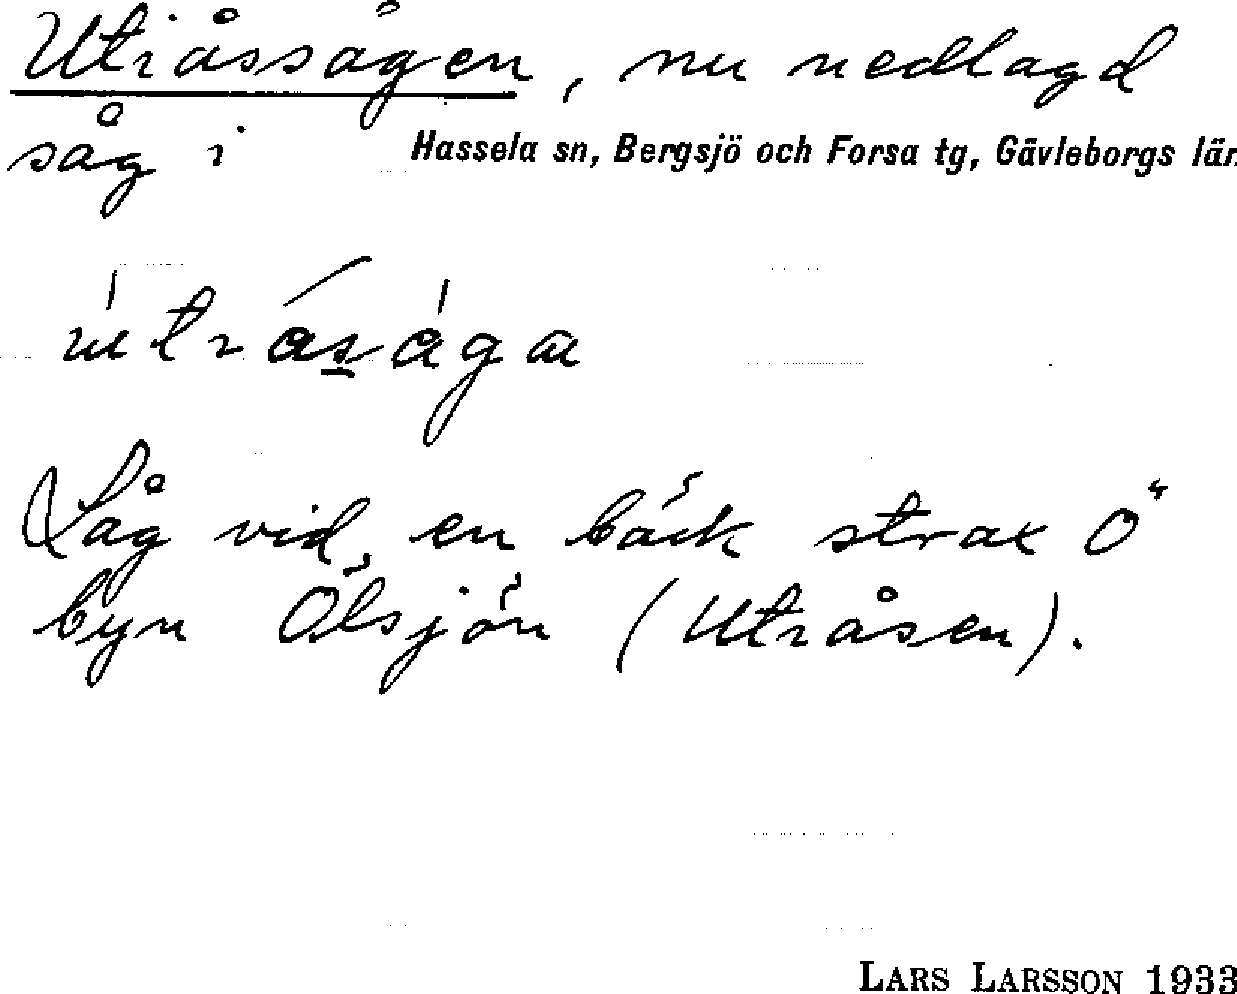 Utråssågen, nu nedlagd
såg i Hassela sn, Bergsjö och Forsa tg, Gävleborgs län
Låg vid en bäck strax Ö
byn Ölsjön (Utråsen).
LARS LARSSON 1933